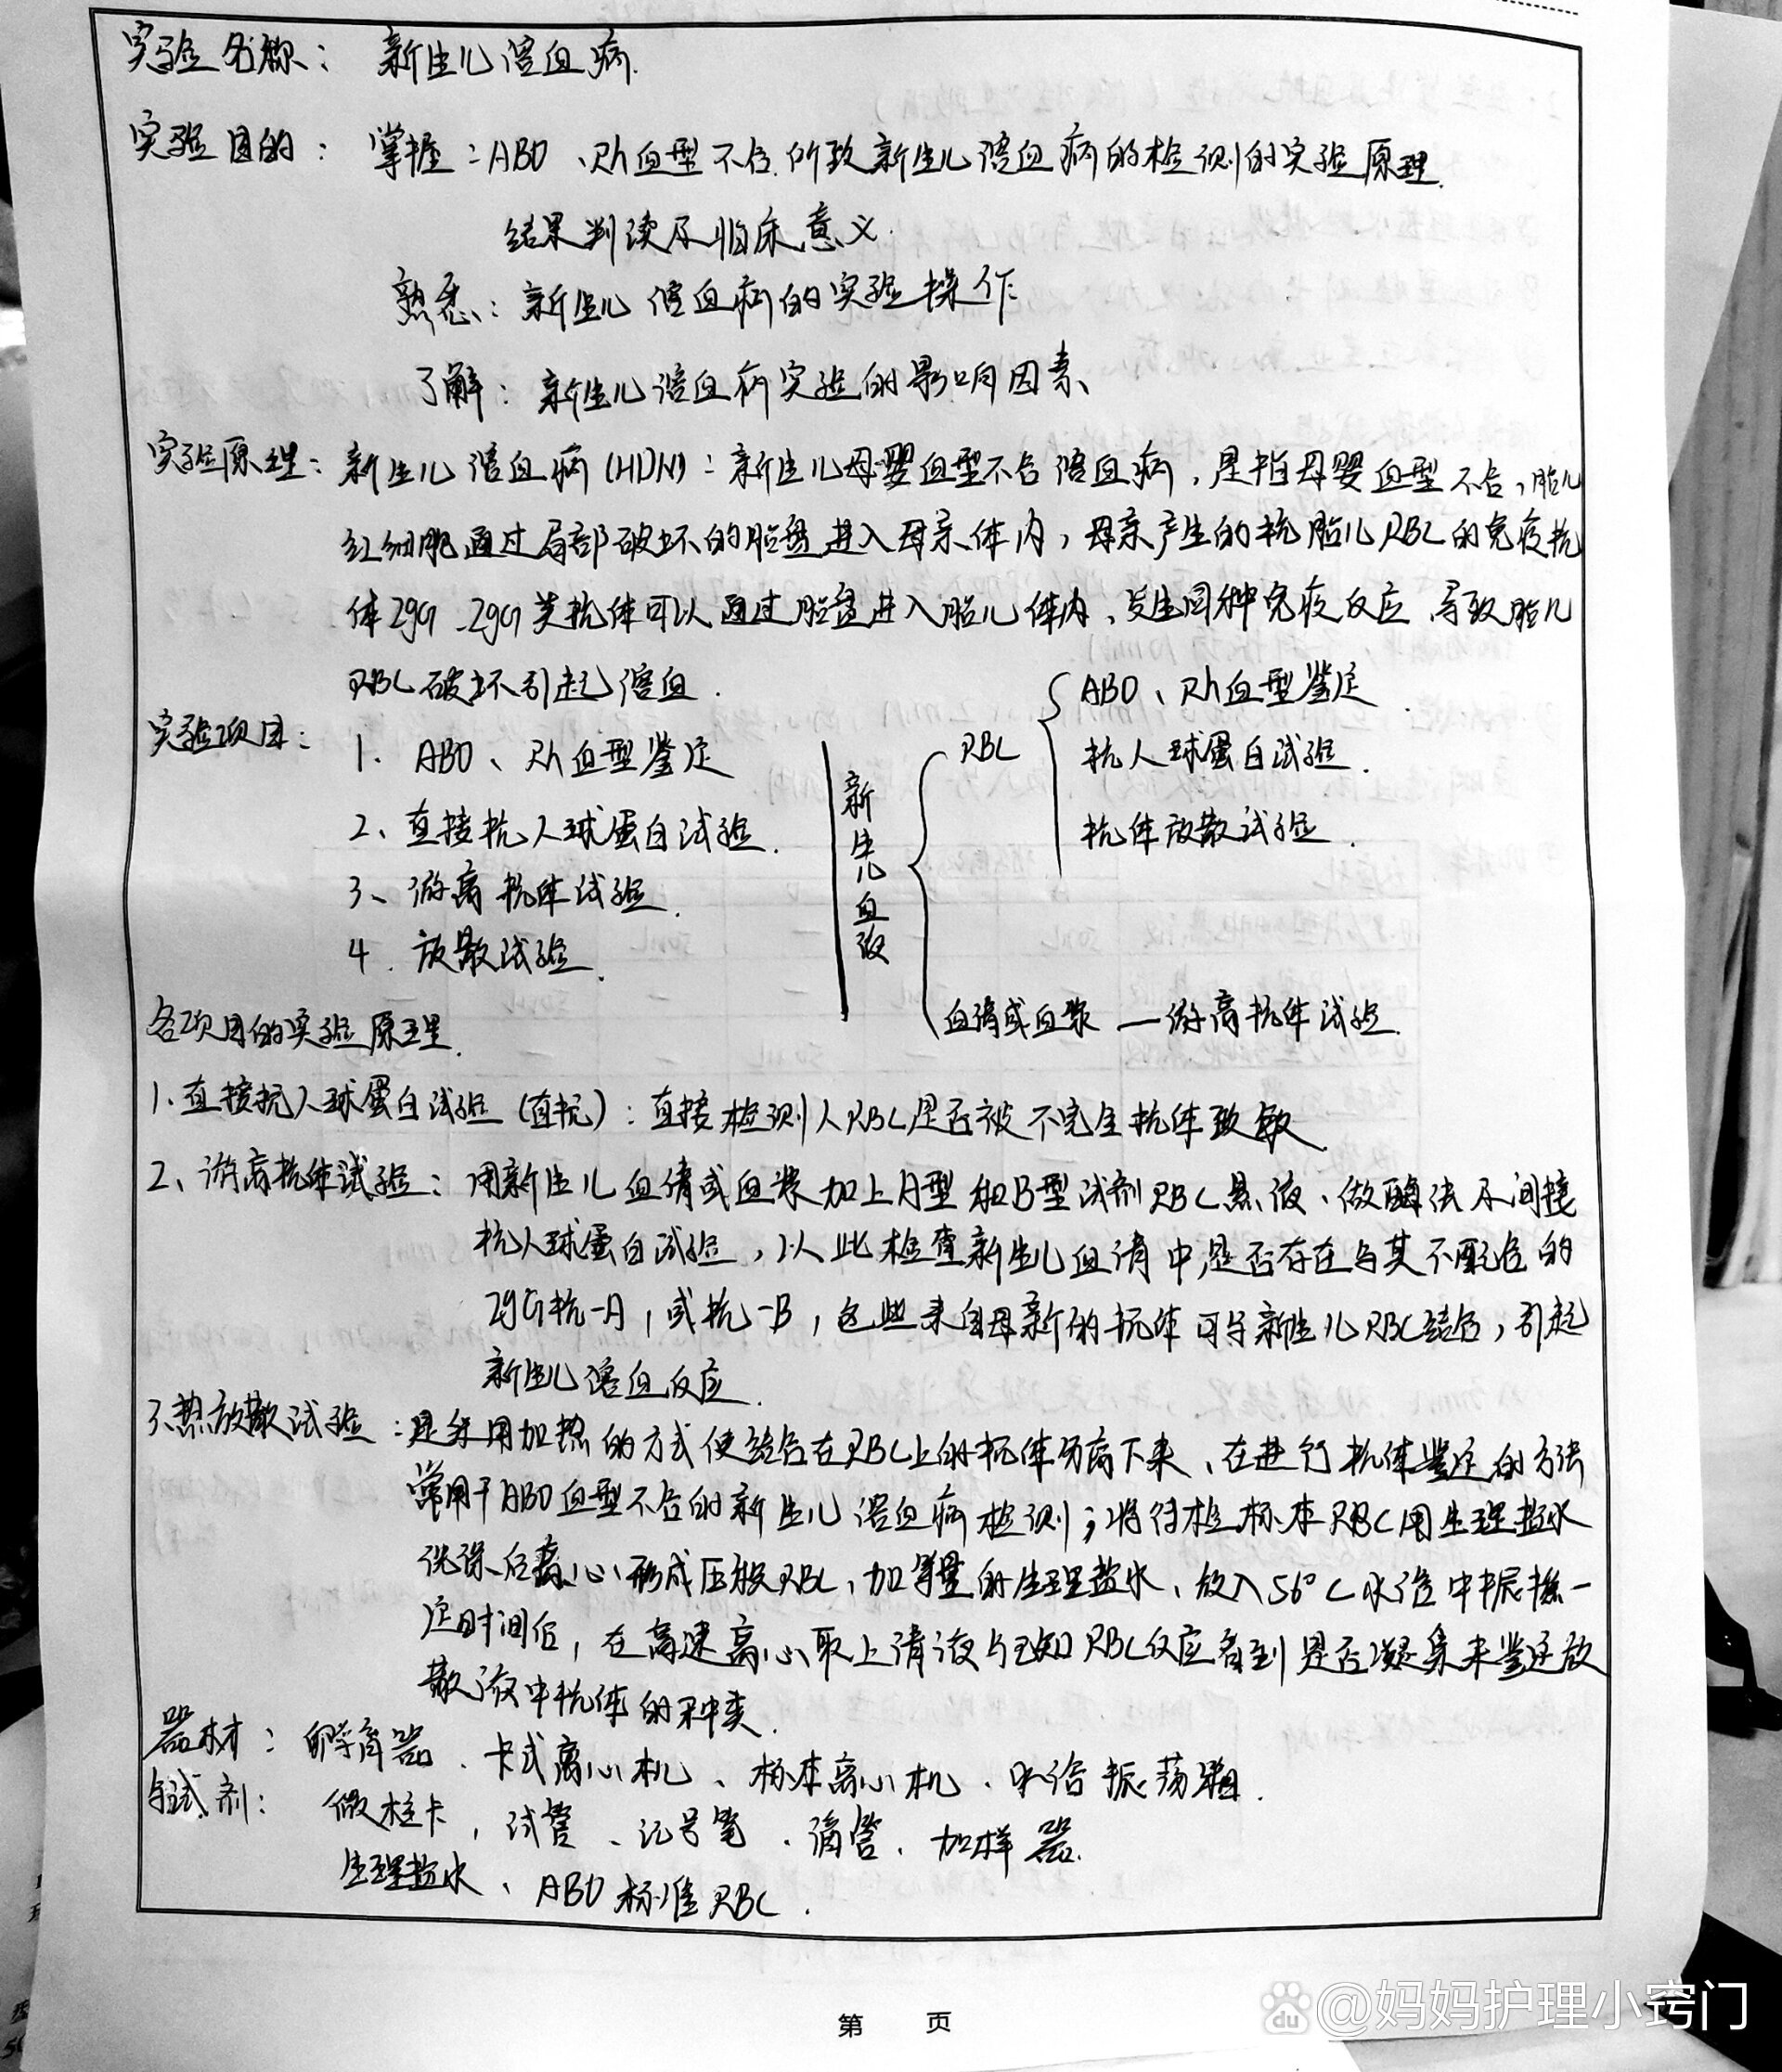 实验名称： 新生儿溶血病.
实验目的： 掌握：ABO、Rh血型不合所致新生儿溶血病的检测的实验原理.
结果判读及临床意义.
熟悉：新生儿溶血病的实验操作
了解：新生儿溶血病实验的影响因素
实验原理：新生儿溶血病(HDN)：新生儿母婴血型不合溶血病，是指母婴血型不合，胎儿
红细胞通过局部破坏的胎盘进入母亲体内，母亲产生的抗胎儿RBC的免疫抗
体IgG、IgG类抗体可以通过胎盘进入胎儿体内、发生同种免疫反应、导致胎儿
RBC破坏引起溶血.
实验项目：
1. ABO、Rh血型鉴定
2、直接抗人球蛋白试验.
3、游离抗体试验.
4. 放散试验.
新生儿血液
RBC
ABO、Rh血型鉴定.
抗人球蛋白试验.
抗体放散试验.
血清或血浆 — 游离抗体试验.
各项目的实验原理.
1. 直接抗人球蛋白试验(直抗)：直接检测人RBC是否被不完全抗体致敏.
2、游离抗体试验：用新生儿血清或血浆加上A型和B型试剂RBC悬液、做酶法及间接
抗人球蛋白试验，以此检查新生儿血清中是否存在与其不配合的
IgG抗-A，或抗-B，这些来自母新的抗体可与新生儿RBC结合，引起
新生儿溶血反应.
3、热放散试验：是采用加热的方式使结合在RBC上的抗体分离下来、在进行抗体鉴定的方法
常用于ABO血型不合的新生儿溶血病检测；将待检标本RBC用生理盐水
洗涤后离心形成压积RBC，加等量的生理盐水、放入56°C水浴中振摇一
定时间后，在高速离心取上清液与已知RBC反应看到是否凝集来鉴定放
散液中抗体的种类.
器材：孵育器、卡式离心机、标本离心机、水浴振荡箱.
与试剂： 微柱卡，试管、记号笔、滴管、加样器.
生理盐水、ABO标准RBC.
第 页
@妈妈护理小窍门